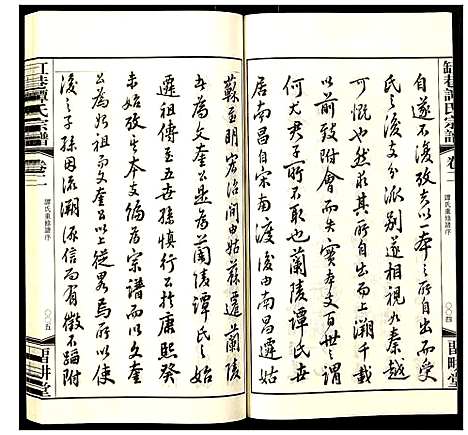 缸巷譚氏宗譜
卷二
譚氏重修譜序
〇〇四
留耕堂
自遂不復攷夫以一本之所自出而受
氏之後支分派別遂相視如秦越
可慨也夫然所自出而上溯千載
以前致并失實本支百世之謂
何尤君子所不敢也蘭陵譚氏
居南昌自宋南渡後由南昌遷
蘇至明宏治間由姑蘇遷蘭陵
者為文奎為蘭陵譚氏之始
遷祖傳至五世孫慎行公於康熙癸
未始攷本支編為宗譜而以文奎
公為始祖文奎公以上從畧焉所以使
後之子孫因流溯源信而有徵不蹈附
江巷譚氏宗譜
卷二
譚氏重修譜序
〇〇五
留耕堂